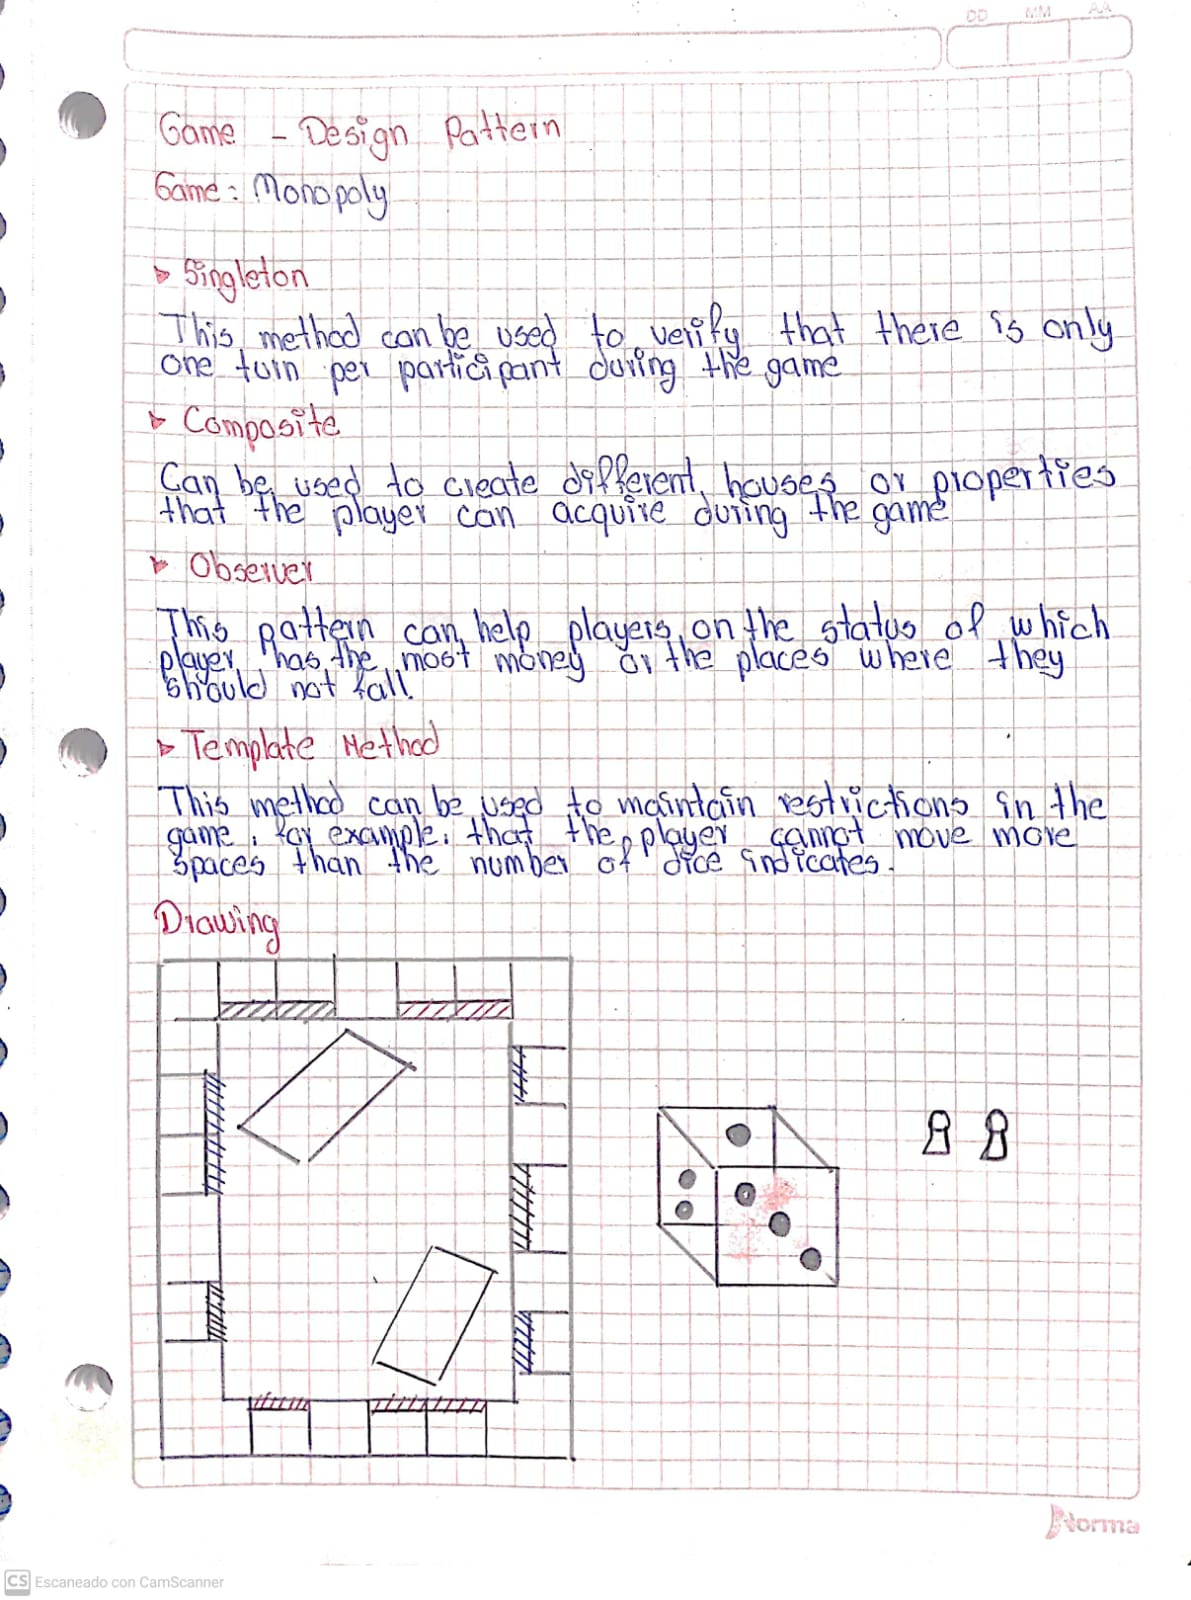 DD MM AA
Game - Design Pattern
Game: Monopoly
Singleton
This method can be used to verify that there is only
one turn per participant during the game
Composite
Can be used to create different houses or properties
that the player can acquire during the game
Observer
This pattern can help players on the status of which
player has the most money or the places where they
should not fall.
Template Method
This method can be used to maintain restrictions in the
game, for example: that the player cannot move more
spaces than the number of dice indicates.
Drawing
Norma
CS Escaneado con CamScanner